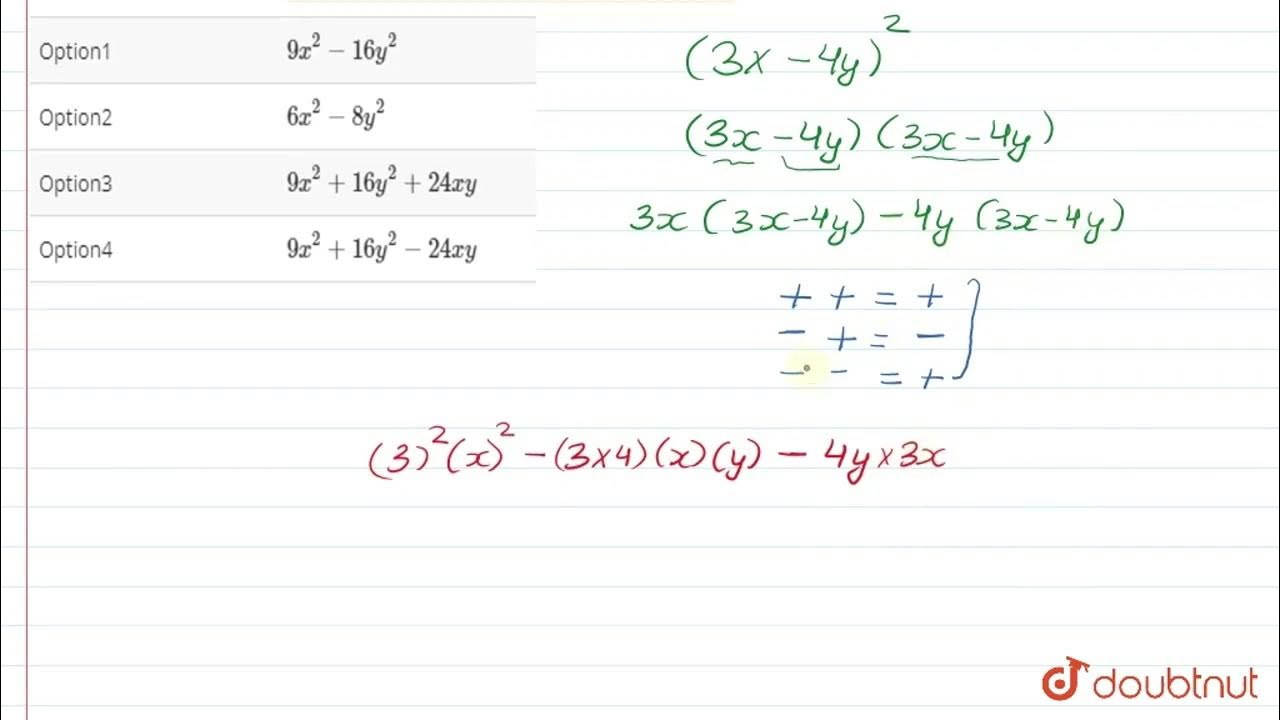 Option1 9x² − 16y²
Option2 6x² − 8y²
Option3 9x² + 16y² + 24xy
Option4 9x² + 16y² − 24xy
(3x − 4y)²
(3x − 4y) (3x − 4y)
3x (3x − 4y) − 4y (3x − 4y)
+ + = +
− + = −
− − = +
(3)² (x)² − (3 × 4) (x) (y) − 4y × 3x
doubtnut